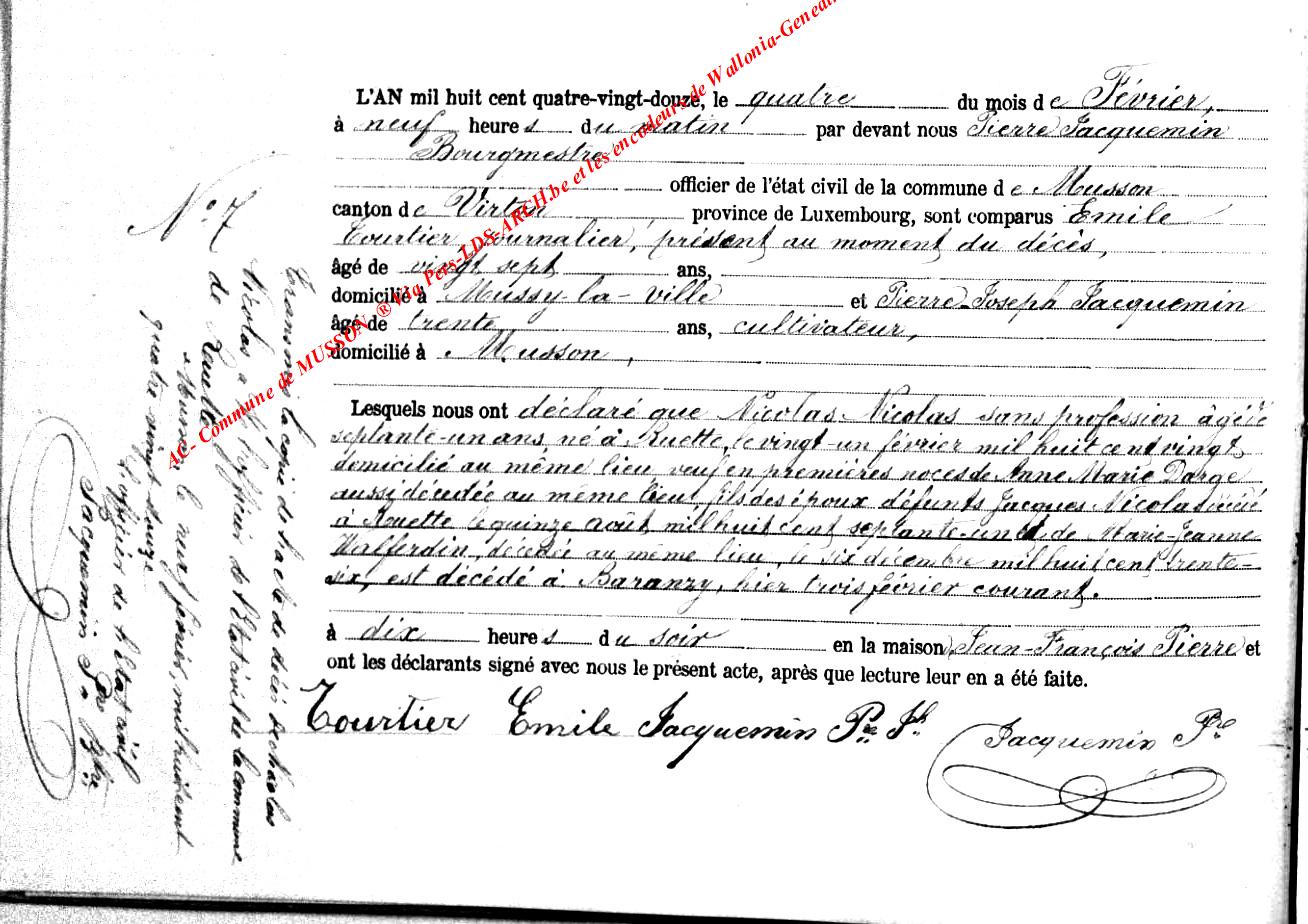 L'AN mil huit cent quatre-vingt-douze, le quatre du mois de Février,
à neuf heures du matin par devant nous Pierre Jacquemin
Bourgmestre
officier de l'état civil de la commune de Musson
canton de Virton province de Luxembourg, sont comparus Emile
Tourtier, journalier, présent au moment du décès,
âgé de vingt sept ans,
domicilié à Mussy-la-ville et Pierre-Joseph Jacquemin
âgé de trente ans, cultivateur,
domicilié à Musson,
Lesquels nous ont déclaré que Nicolas Nicolas sans profession âgé de
septante-un ans, né à Ruette, le vingt-un février mil huit cent vingt
domicilié au même lieu veuf en premières noces de Anne Marie Darge
aussi décédée au même lieu, fils des époux défunts Jacques Nicolas décédé
à Ruette le quinze août mil huit cent septante-un et de Marie-Jeanne
Walferdin, décédée au même lieu, le six décembre mil huit cent trente-
six, est décédé à Baranzy, hier trois février courant.
à dix heures du soir en la maison Jean-François Pierre et
ont les déclarants signé avec nous le présent acte, après que lecture leur en a été faite.
Tourtier Emile Jacquemin Pre Jh Jacquemin Pre
N° 7
Transmis la copie de l'acte de décès de Nicolas
Nicolas à Mr l'officier de l'Etat civil de la commune
de Ruette
Musson le neuf février, mil huit cent
quatre vingt douze
L'officier de l'état civil
Jacquemin Pre
Ac- Commune de MUSSON ® Via Pers-LDS-ARCH.be et les encodeurs de Wallonia-Genea